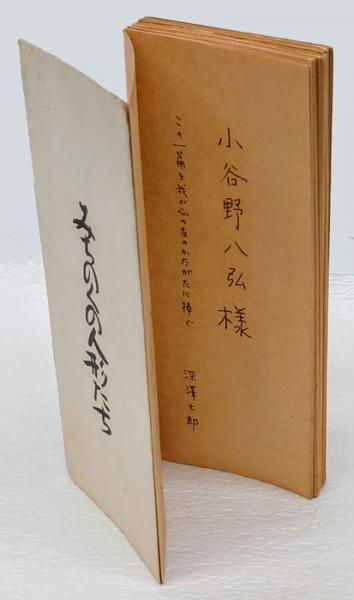 みちのくの人形たち
小谷野八弘様
この一篇を我が心の友のかたがたに捧ぐ
深澤七郎